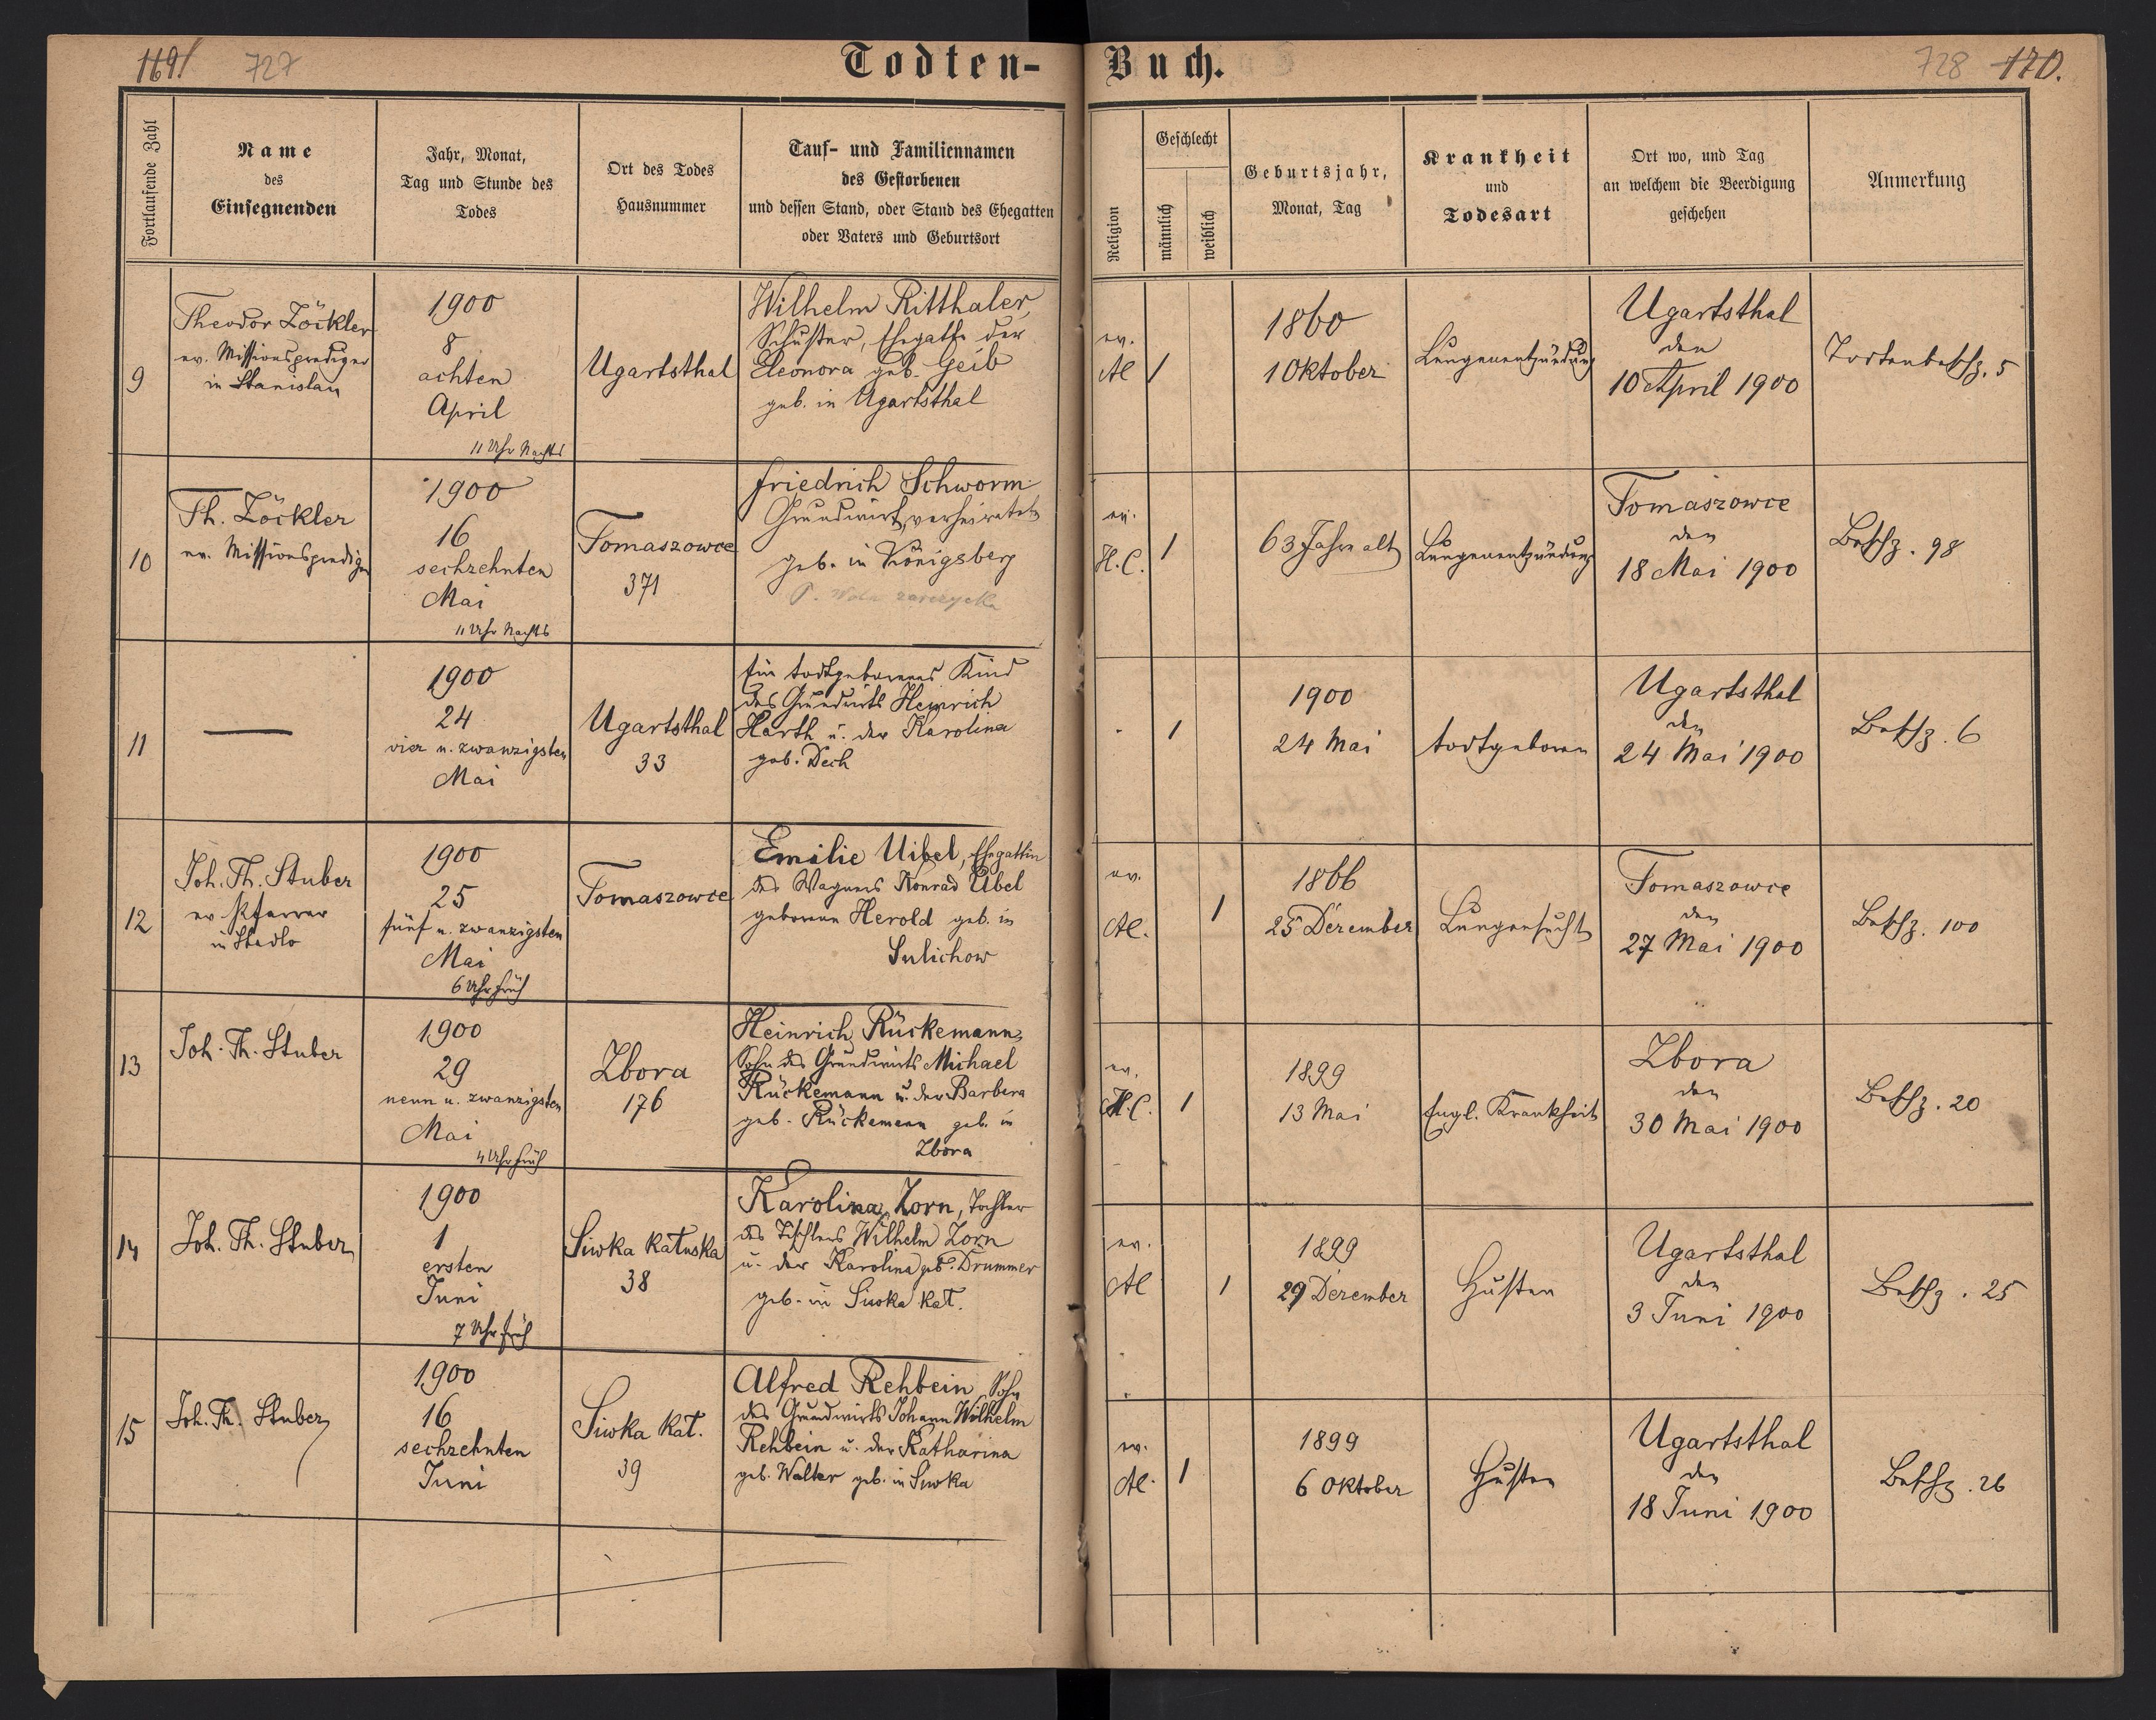 169/ 727
Todten-Buch.
728 170.
Fortlaufende Zahl
Name
des
Einsegnenden
Jahr, Monat,
Tag und Stunde des
Todes
Ort des Todes
Hausnummer
Tauf- und Familiennamen
des Gestorbenen
und dessen Stand, oder Stand des Ehegatten
oder Vaters und Geburtsort
Religion
Geschlecht
männlich
weiblich
Geburtsjahr,
Monat, Tag
Krankheit
und
Todesart
Ort wo, und Tag
an welchem die Beerdigung
geschehen
Anmerkung
9
Theodor Zöckler
ev. Missionsprediger
in Stanislau
1900
8
achten
April
11 Uhr Nachts
Ugartsthal
Wilhelm Ritthaler,
Schuster, Ehegatte der
Eleonora geb. Geib
geb. in Ugartsthal
ev.
AC
1
1860
1 Oktober
Lungenentzündung
Ugartsthal
den
10 April 1900
Todtenbeschz. 5
10
Th. Zöckler
ev. Missionsprediger
1900
16
sechzehnten
Mai
11 Uhr Nachts
Tomaszowce
371
Friedrich Schworm
Grundwirt, verheiratet
geb. in Königsberg
P. Wola zarczycka
ev.
H.C.
1
63 Jahre alt
Lungenentzündung
Tomaszowce
den
18 Mai 1900
Beschz. 98
11
—
1900
24
vier u. zwanzigsten
Mai
Ugartsthal
33
Ein todtgeborenes Kind
des Grundwirts Heinrich
Harth u. der Karolina
geb. Dech
1
1900
24 Mai
todtgeboren
Ugartsthal
den
24 Mai 1900
Beschz. 6
12
Joh. Th. Stuber
ev. Pfarrer
in Stadlo
1900
25
fünf u. zwanzigsten
Mai
6 Uhr früh
Tomaszowce
Emilie Uibel, Ehegattin
des Wagners Konrad Übel
geborene Herold geb. in
Sulichow
ev.
AC.
1
1866
25 Dezember
Lungensucht
Tomaszowce
den
27 Mai 1900
Beschz. 100
13
Joh. Th. Stuber
1900
29
neun u. zwanzigsten
Mai
4 Uhr früh
Zbora
176
Heinrich Rückemann,
Sohn des Grundwirts Michael
Rückemann u. der Barbara
geb. Rückemann geb. in
Zbora
ev.
H.C.
1
1899
13 Mai
Engl. Krankheit
Zbora
den
30 Mai 1900
Beschz. 20
14
Joh. Th. Stuber
1900
1
ersten
Juni
7 Uhr früh
Siwka Katuska
38
Karolina Zorn, Tochter
des Tischlers Wilhelm Zorn
u. der Karolina geb. Drummer
geb. in Siwka Kat.
ev.
AC
1
1899
29 Dezember
Husten
Ugartsthal
den
3 Juni 1900
Beschz. 25
15
Joh. Th. Stuber
1900
16
sechzehnten
Juni
Siwka Kat.
39
Alfred Rehbein, Sohn
des Grundwirts Johann Wilhelm
Rehbein u. der Katharina
geb. Walter geb. in Siwka
ev.
AC.
1
1899
6 Oktober
Husten
Ugartsthal
den
18 Juni 1900
Beschz. 26